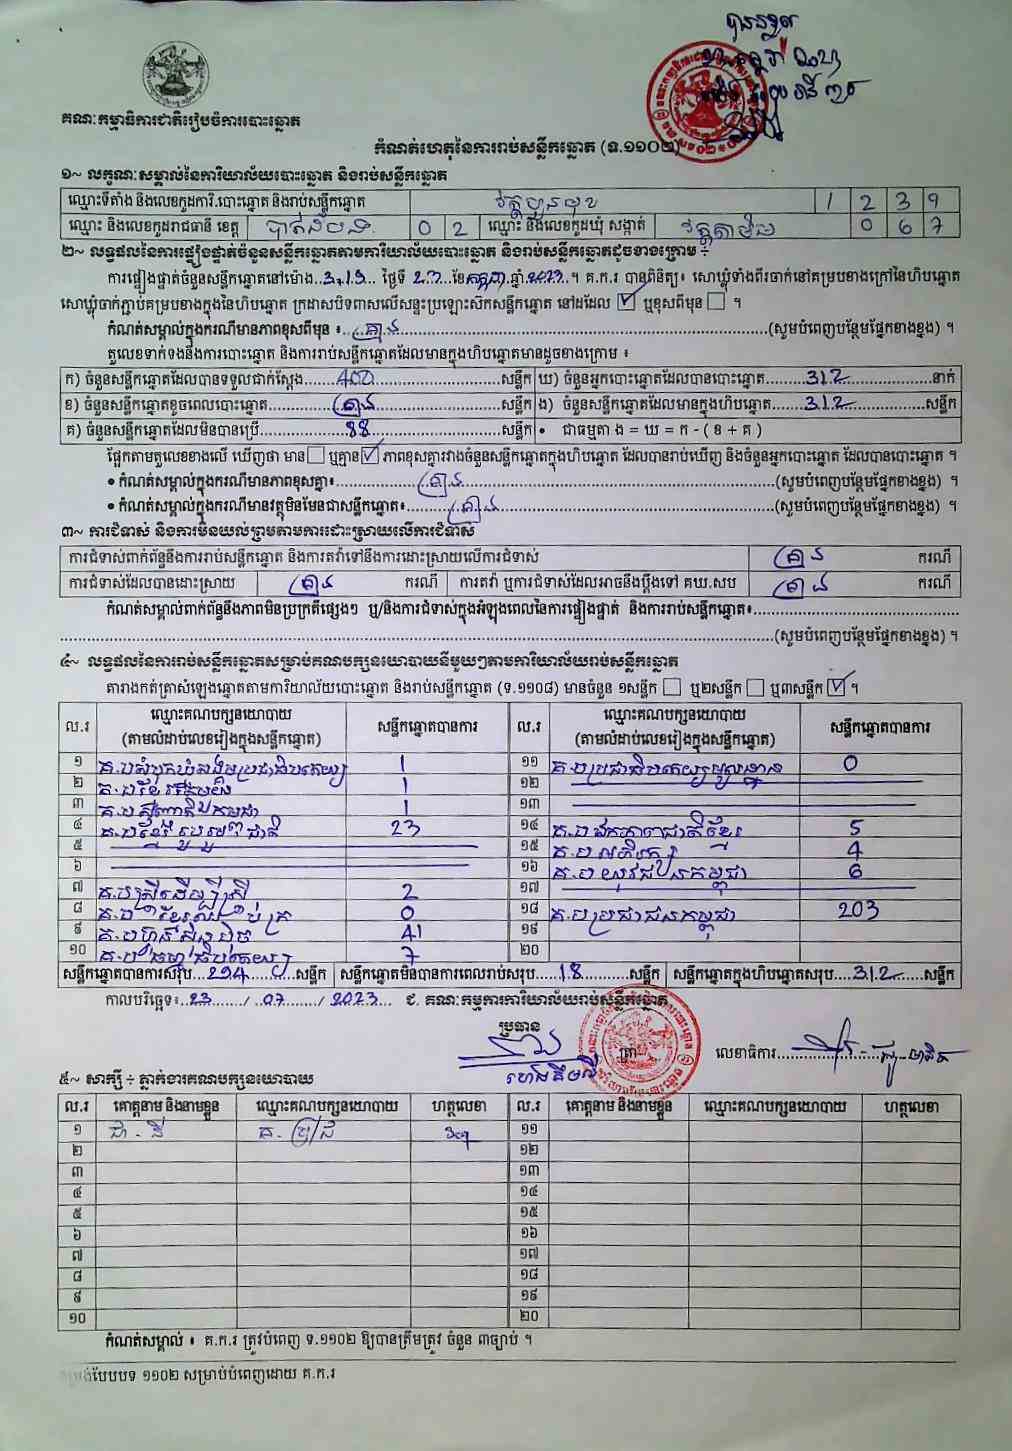 បានទទួល
គណៈកម្មាធិការជាតិរៀបចំការបោះឆ្នោត
កំណត់ហេតុនៃការរាប់សន្លឹកឆ្នោត (ទ.១១០២)
១~ លក្ខណៈសម្គាល់នៃការិយាល័យបោះឆ្នោត និងរាប់សន្លឹកឆ្នោត
ឈ្មោះទីតាំង និងលេខកូដការិ.បោះឆ្នោត និងរាប់សន្លឹកឆ្នោត 1 2 3 9
ឈ្មោះ និងលេខកូដរាជធានី ខេត្ត បាត់ដំបង 0 2 ឈ្មោះ និងលេខកូដឃុំ សង្កាត់ វត្តតាមិម 0 6 7
២~ លទ្ធផលនៃការផ្ទៀងផ្ទាត់ចំនួនសន្លឹកឆ្នោតតាមការិយាល័យបោះឆ្នោត និងរាប់សន្លឹកឆ្នោតដូចខាងក្រោម ÷
ការផ្ទៀងផ្ទាត់ចំនួនសន្លឹកឆ្នោតនៅម៉ោង ថ្ងៃទី 23 ខែ កក្កដា ឆ្នាំ 2023 ។ គ.ក.រ បានពិនិត្យ៖ សោឃ្លុំទាំងពីរចាក់នៅគម្របខាងក្រៅនៃហិបឆ្នោត
សោឃ្លុំចាក់ភ្ជាប់គម្របខាងក្នុងនៃហិបឆ្នោត ក្រដាសបិទពាសលើសន្ទះប្រឡោះស៊ីកសន្លឹកឆ្នោត នៅដដែល ☑ ឬខុសពីមុន ☐ ។
កំណត់សម្គាល់ក្នុងករណីមានភាពខុសពីមុន ៖ គ្មាន (សូមបំពេញបន្ថែមផ្នែកខាងខ្នង) ។
តួលេខទាក់ទងនឹងការបោះឆ្នោត និងការរាប់សន្លឹកឆ្នោតដែលមានក្នុងហិបឆ្នោតមានដូចខាងក្រោម ៖
ក) ចំនួនសន្លឹកឆ្នោតដែលបានទទួលជាក់ស្តែង 400 សន្លឹក ឃ) ចំនួនអ្នកបោះឆ្នោតដែលបានបោះឆ្នោត 312 នាក់
ខ) ចំនួនសន្លឹកឆ្នោតខូចពេលបោះឆ្នោត គ្មាន សន្លឹក ង) ចំនួនសន្លឹកឆ្នោតដែលមានក្នុងហិបឆ្នោត 312 សន្លឹក
គ) ចំនួនសន្លឹកឆ្នោតដែលមិនបានប្រើ 88 សន្លឹក • ជាធម្មតា ង = ឃ = ក - ( ខ + គ )
ផ្អែកតាមតួលេខខាងលើ ឃើញថា មាន ☐ ឬគ្មាន ☑ ភាពខុសគ្នារវាងចំនួនសន្លឹកឆ្នោតក្នុងហិបឆ្នោត ដែលបានរាប់ឃើញ និងចំនួនអ្នកបោះឆ្នោត ដែលបានបោះឆ្នោត ។
• កំណត់សម្គាល់ក្នុងករណីមានភាពខុសគ្នា៖ គ្មាន (សូមបំពេញបន្ថែមផ្នែកខាងខ្នង) ។
• កំណត់សម្គាល់ក្នុងករណីមានវត្ថុមិនមែនជាសន្លឹកឆ្នោត៖ គ្មាន (សូមបំពេញបន្ថែមផ្នែកខាងខ្នង) ។
៣~ ការជំទាស់ និងការមិនយល់ព្រមតាមការដោះស្រាយលើការជំទាស់
ការជំទាស់ពាក់ព័ន្ធនឹងការរាប់សន្លឹកឆ្នោត និងការតវ៉ាទៅនឹងការដោះស្រាយលើការជំទាស់ គ្មាន ករណី
ការជំទាស់ដែលបានដោះស្រាយ គ្មាន ករណី ការតវ៉ា ឬការជំទាស់ដែលអាចនឹងប្តឹងទៅ គឃ.សប គ្មាន ករណី
កំណត់សម្គាល់ពាក់ព័ន្ធនឹងភាពមិនប្រក្រតីផ្សេងៗ ឬ/និងការជំទាស់ក្នុងអំឡុងពេលនៃការផ្ទៀងផ្ទាត់ និងការរាប់សន្លឹកឆ្នោត៖
(សូមបំពេញបន្ថែមផ្នែកខាងខ្នង) ។
៤~ លទ្ធផលនៃការរាប់សន្លឹកឆ្នោតសម្រាប់គណបក្សនយោបាយនីមួយៗតាមការិយាល័យរាប់សន្លឹកឆ្នោត
តារាងកត់ត្រាសំឡេងឆ្នោតតាមការិយាល័យបោះឆ្នោត និងរាប់សន្លឹកឆ្នោត (ទ.១១០៨) មានចំនួន ១សន្លឹក ☐ ឬ២សន្លឹក ☐ ឬ៣សន្លឹក ☑ ។
ល.រ ឈ្មោះគណបក្សនយោបាយ (តាមលំដាប់លេខរៀងក្នុងសន្លឹកឆ្នោត) សន្លឹកឆ្នោតបានការ ល.រ ឈ្មោះគណបក្សនយោបាយ (តាមលំដាប់លេខរៀងក្នុងសន្លឹកឆ្នោត) សន្លឹកឆ្នោតបានការ
១ គ.បសំបុកឃ្មុំសង្គមប្រជាធិបតេយ្យ 1 ១១ គ.បប្រជាធិបតេយ្យមូលដ្ឋាន 0
២ 1 ១២
៣ 1 ១៣
៤ គ.បខ្មែររួបរួមជាតិ 23 ១៤ គ.បឯកភាពជាតិខ្មែរ 5
៥ ១៥ 4
៦ ១៦ គ.បយុវជនកម្ពុជា 6
៧ គ.បស្ត្រីដើម្បីស្ត្រី 2 ១៧
៨ 0 ១៨ គ.បប្រជាជនកម្ពុជា 203
៩ គ.បហ្វ៊ុនស៊ិនប៉ិច 41 ១៩
១០ 7 ២០
សន្លឹកឆ្នោតបានការសរុប 294 សន្លឹក សន្លឹកឆ្នោតមិនបានការពេលរាប់សរុប 18 សន្លឹក សន្លឹកឆ្នោតក្នុងហិបឆ្នោតសរុប 312 សន្លឹក
កាលបរិច្ឆេទ៖ 23 / 07 / 2023 ជ. គណៈកម្មការការិយាល័យរាប់សន្លឹកឆ្នោត
ប្រធាន
ត្រា លេខាធិការ
៥~ សាក្សី ÷ ភ្នាក់ងារគណបក្សនយោបាយ
ល.រ គោត្តនាម និងនាមខ្លួន ឈ្មោះគណបក្សនយោបាយ ហត្ថលេខា ល.រ គោត្តនាម និងនាមខ្លួន ឈ្មោះគណបក្សនយោបាយ ហត្ថលេខា
១ គ. ប្រ/ជ ១១
២ ១២
៣ ១៣
៤ ១៤
៥ ១៥
៦ ១៦
៧ ១៧
៨ ១៨
៩ ១៩
១០ ២០
កំណត់សម្គាល់ ៖ គ.ក.រ ត្រូវបំពេញ ទ.១១០២ ឱ្យបានត្រឹមត្រូវ ចំនួន ៣ច្បាប់ ។
បែបបទ ១១០២ សម្រាប់បំពេញដោយ គ.ក.រ